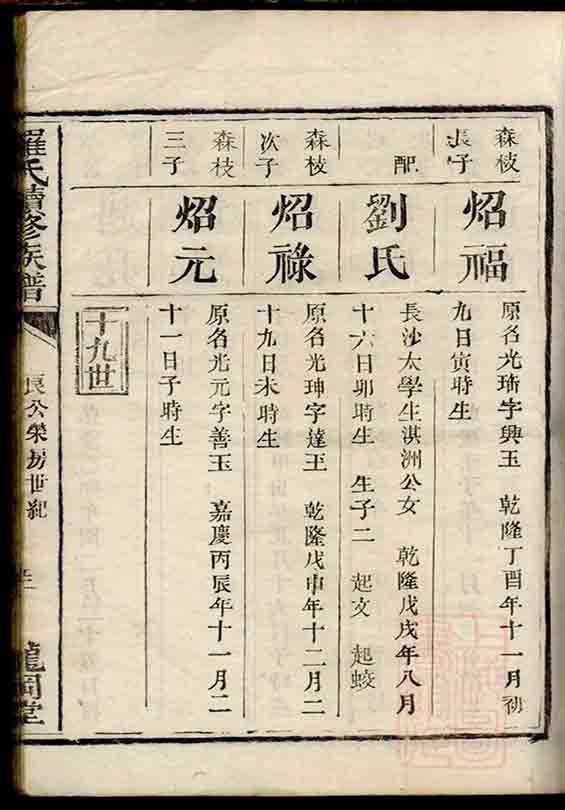 森枝
長子
炤福
原名光琇字興玉 乾隆丁酉年十一月初
九日寅時生
配
劉氏
長沙太學生淇洲公女 乾隆戊戌年八月
十六日卯時生 生子二 起文 起蛟
森枝
次子
炤祿
原名光珅字達玉 乾隆戊申年十二月二
十九日未時生
森枝
三子
炤元
原名光元字善玉 嘉慶丙辰年十一月二
十一日子時生
十九世
羅氏續修族譜
良公榮房世紀
龍岡堂